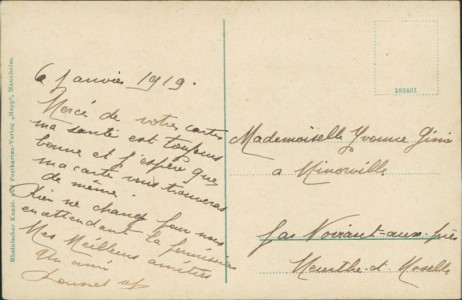 6 Janvier 1919.
Mercé de votre cartes
ma santé est toujours
bonne et j'espère que
ma carte vous trouveras
de même.
Rien ne change pour nous
en attendant la
Mes Meilleurs amitiés
Un ami
Mademoiselle Yvonne
a Minorville
par Noviant-aux-prés
Meurthe-et-Moselle
163401
Rheinischer Kunst- und Postkarten-Verlag „Rapp", Mannheim.